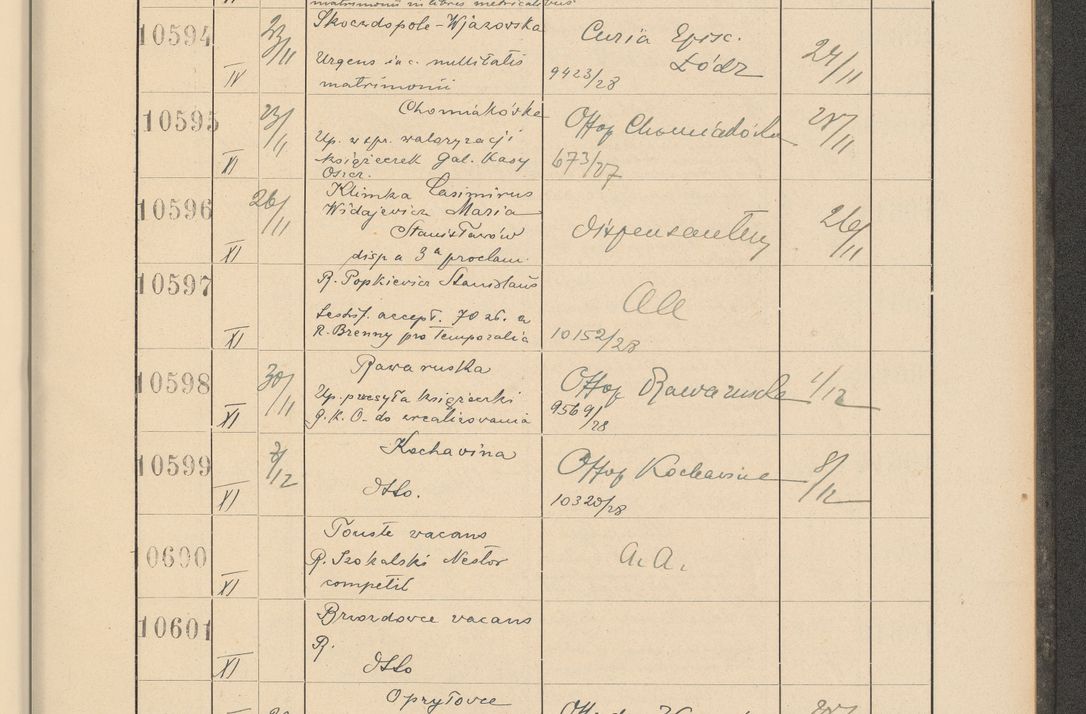 matrimonii in libris metricalibus
10594 IV 23/11 Skoczdopole - Wjazovska
Urgens in c. nullitatis
matrimonii
Curia Episc.
Łódz
9423/28
24/11
10595 XI 23/11 Chomiakówka
Up. w spr. waloryzacji
książeczek Gal. Kasy
Oszcz.
Offop Chomiakówka
673/27
27/11
10596 XI 26/11 Klimka Casimirus
Widajewicz Maria
Stanisławów
disp a 3ª proclam.
26/11
10597 XI R. Popkievicz Stanislaus
accept. 70 zł. a
R. Brenny pro temporalia
aa
10152/28
10598 XI 30/11 Rawa ruska
Up. przesyła książeczki
P.K.O. do zrealizovania
Offop Rawa ruska
9569/28
1/12
10599 XI Kochavina
Dtto.
Offop Kochavina
10320/28
8/12
10600 XI Touste vacans
R. Szokalski Nestor
competit
a.a.
10601 XI Brvozdovce vacans
R.
Dtto
Opryłovce